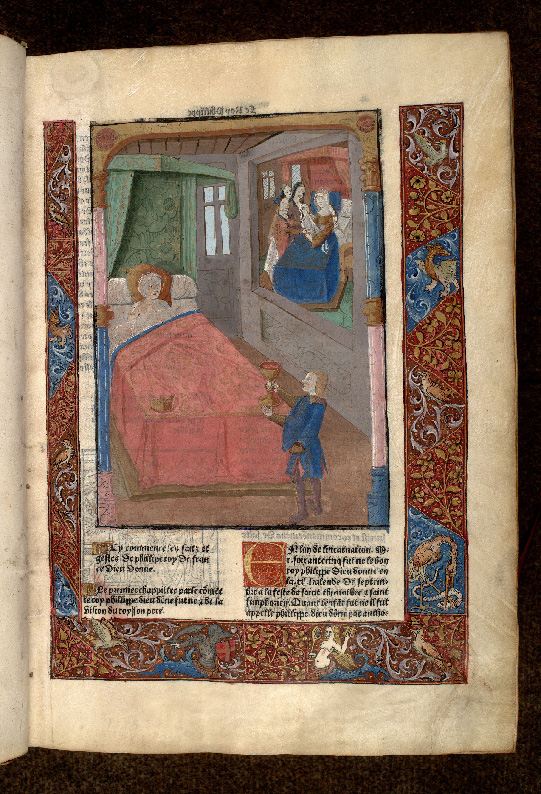 Cy commence les faitz et
gestes de philippe roy de fran
ce Dieu donne.
Le premier chappitre parle comēt
le roy philippe dieu dōne fut ne, & de la
vision du roy son pere.
EN lan de lincarnation M.
c. soixante cinq fut ne le bon
roy philippe Dieu donne en
la kalende de septem
bre a la feste de saint thimothee & saint
simphorien. Quant lenfāt fut ne il fut
appelle philippe dieu dōne par anthno